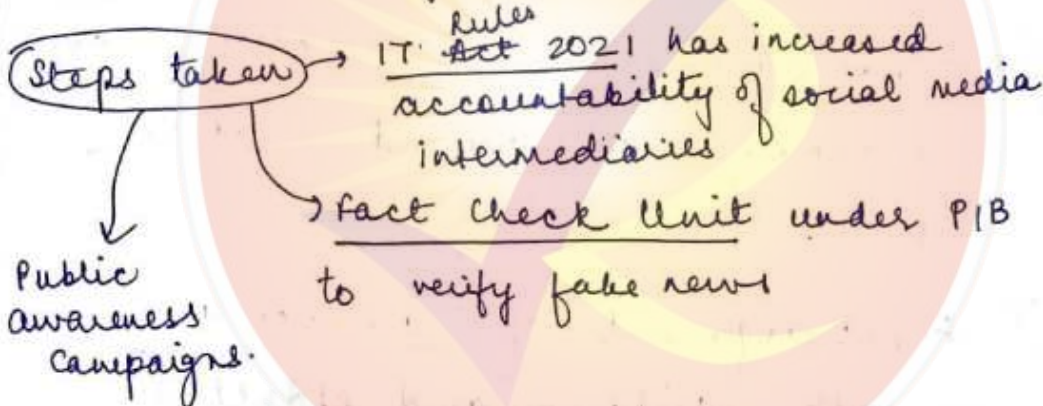 Steps taken → IT Rules ~~Act~~ 2021 has increased
accountability of social media
intermediaries
→ Fact Check Unit under PIB
to verify fake news
Public
awareness
Campaigns.